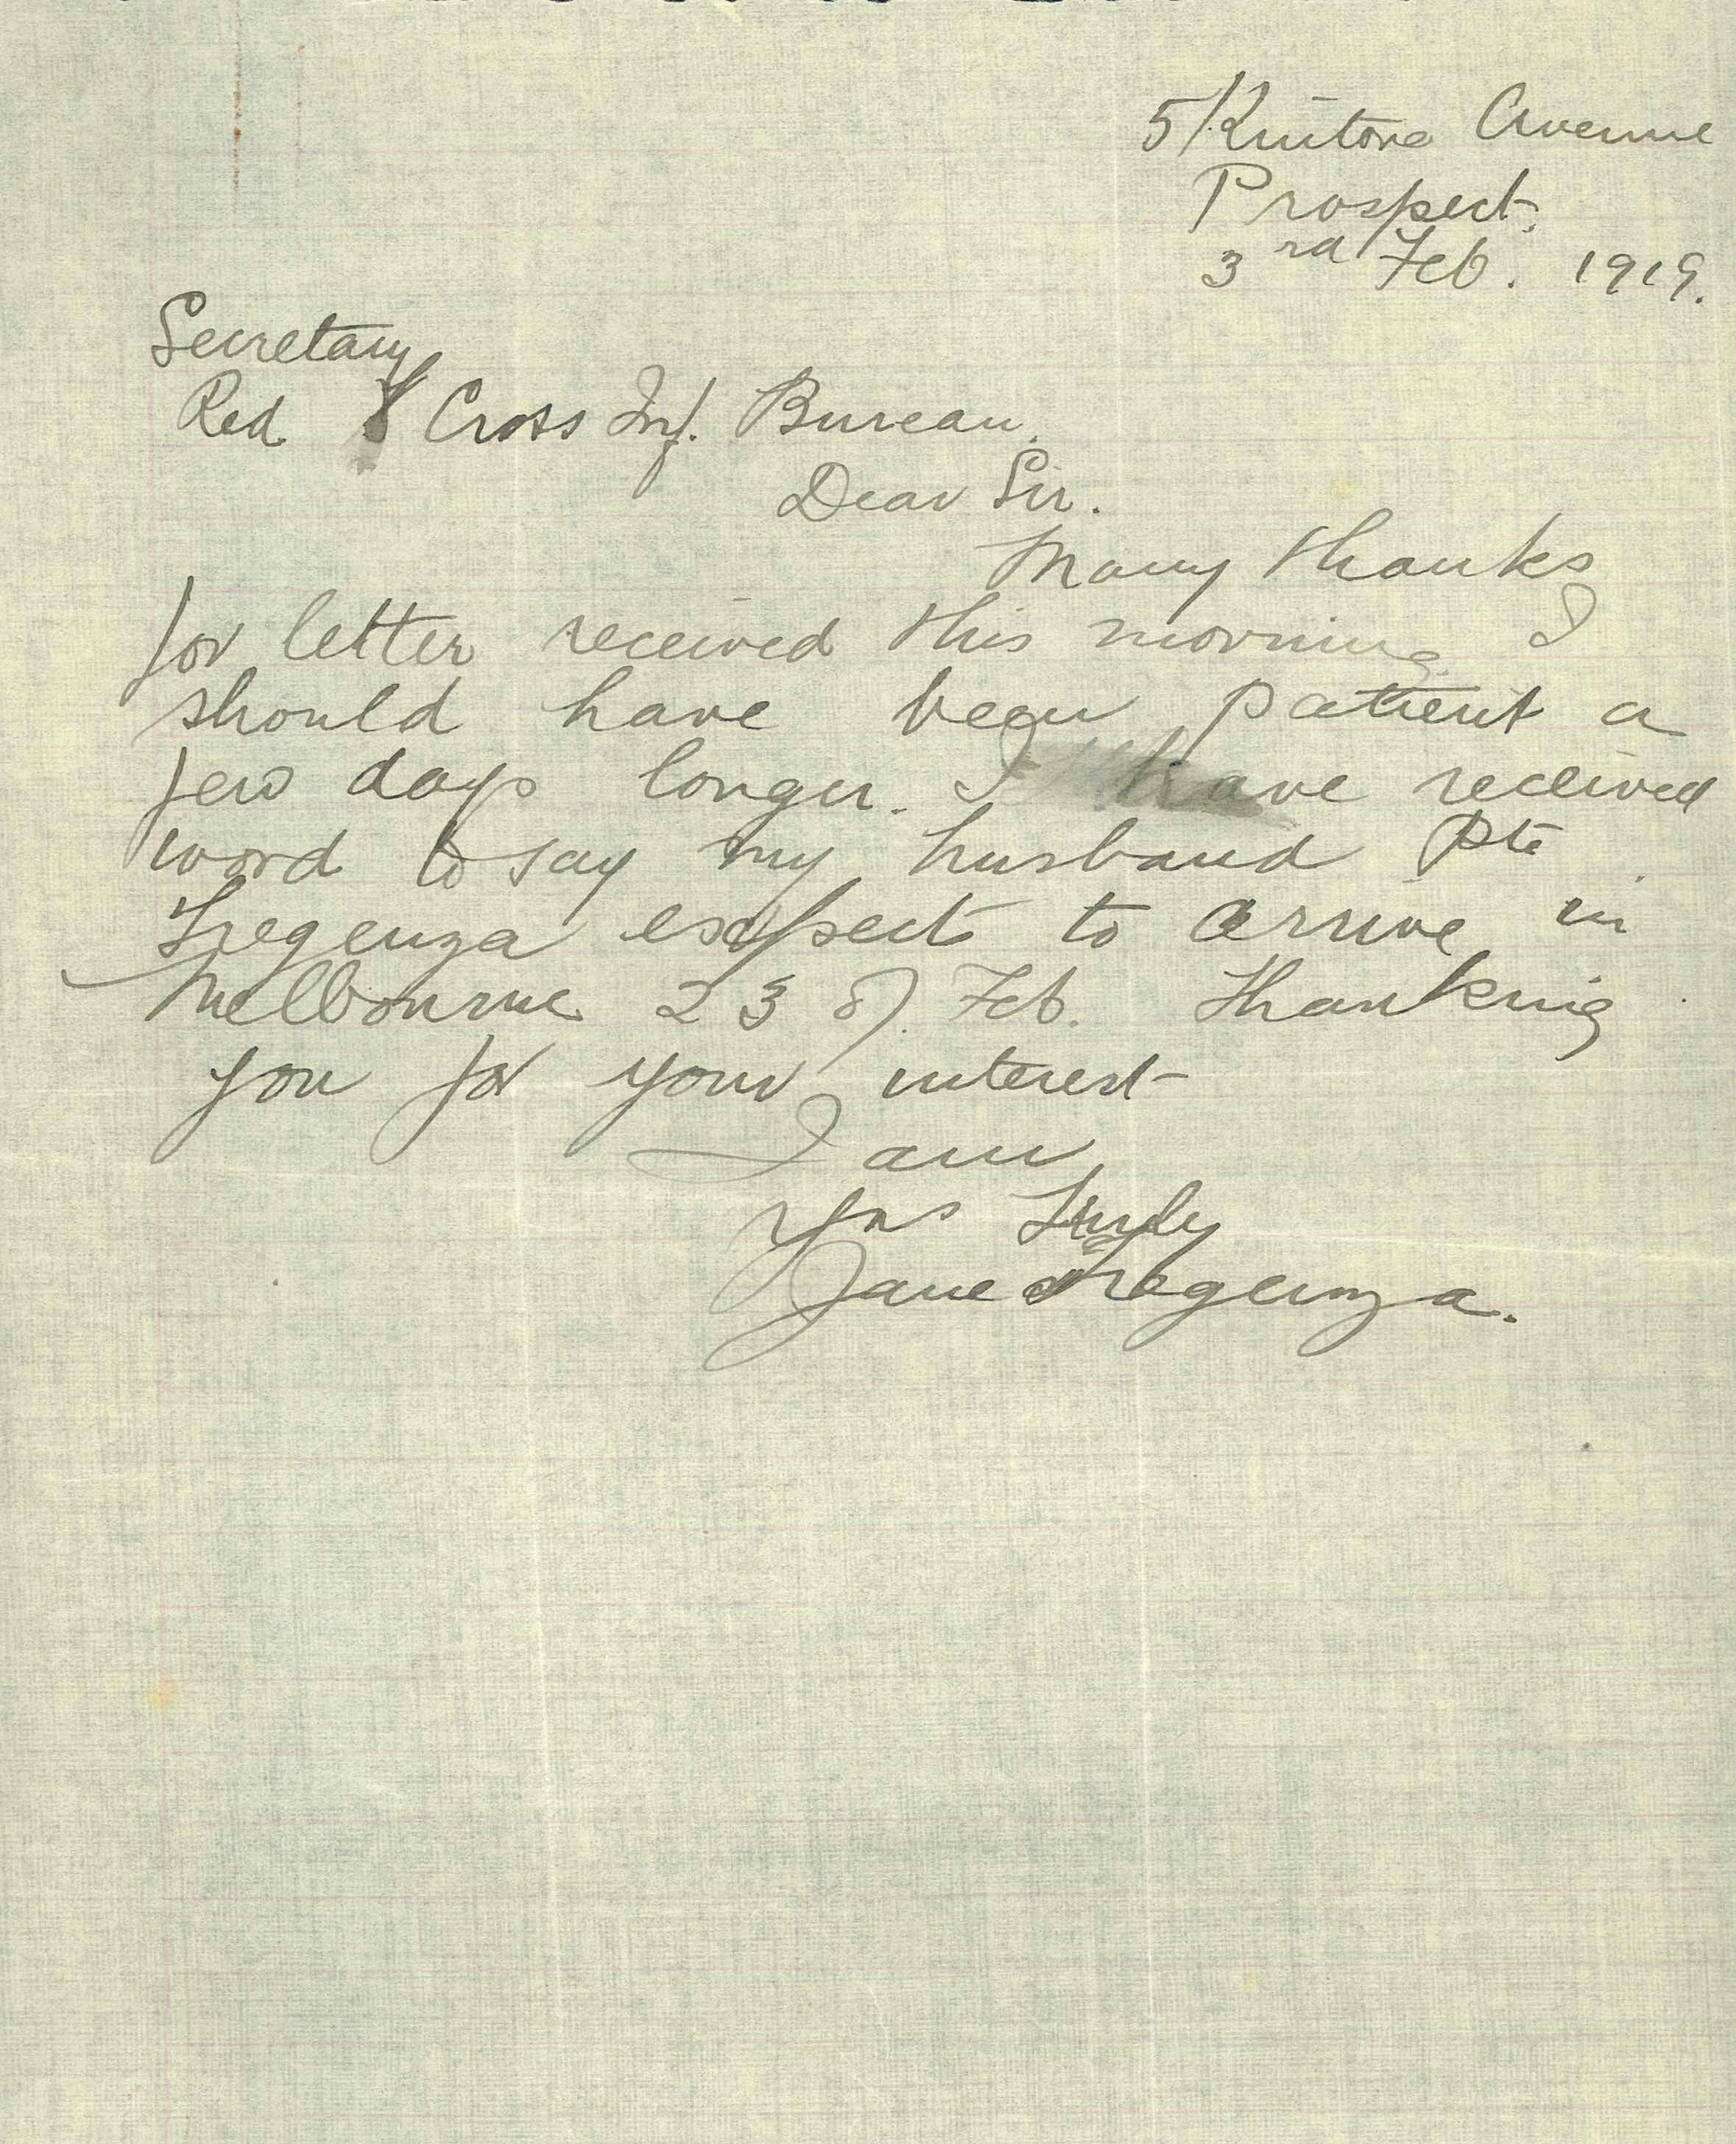 5 Kintore Avenue
Prospect.
3rd Feb. 1919.
Secretary
Red Cross Inf. Bureau.
Dear Sir.
Many thanks
for letter received this morning I
should have been patient a
few days longer. I have received
word to say my husband Pte
Tregenza expects to arrive in
Melbourne 23 of. Feb. Thanking
you for your interest
I am
Yrs Truly
Jane Tregenza.